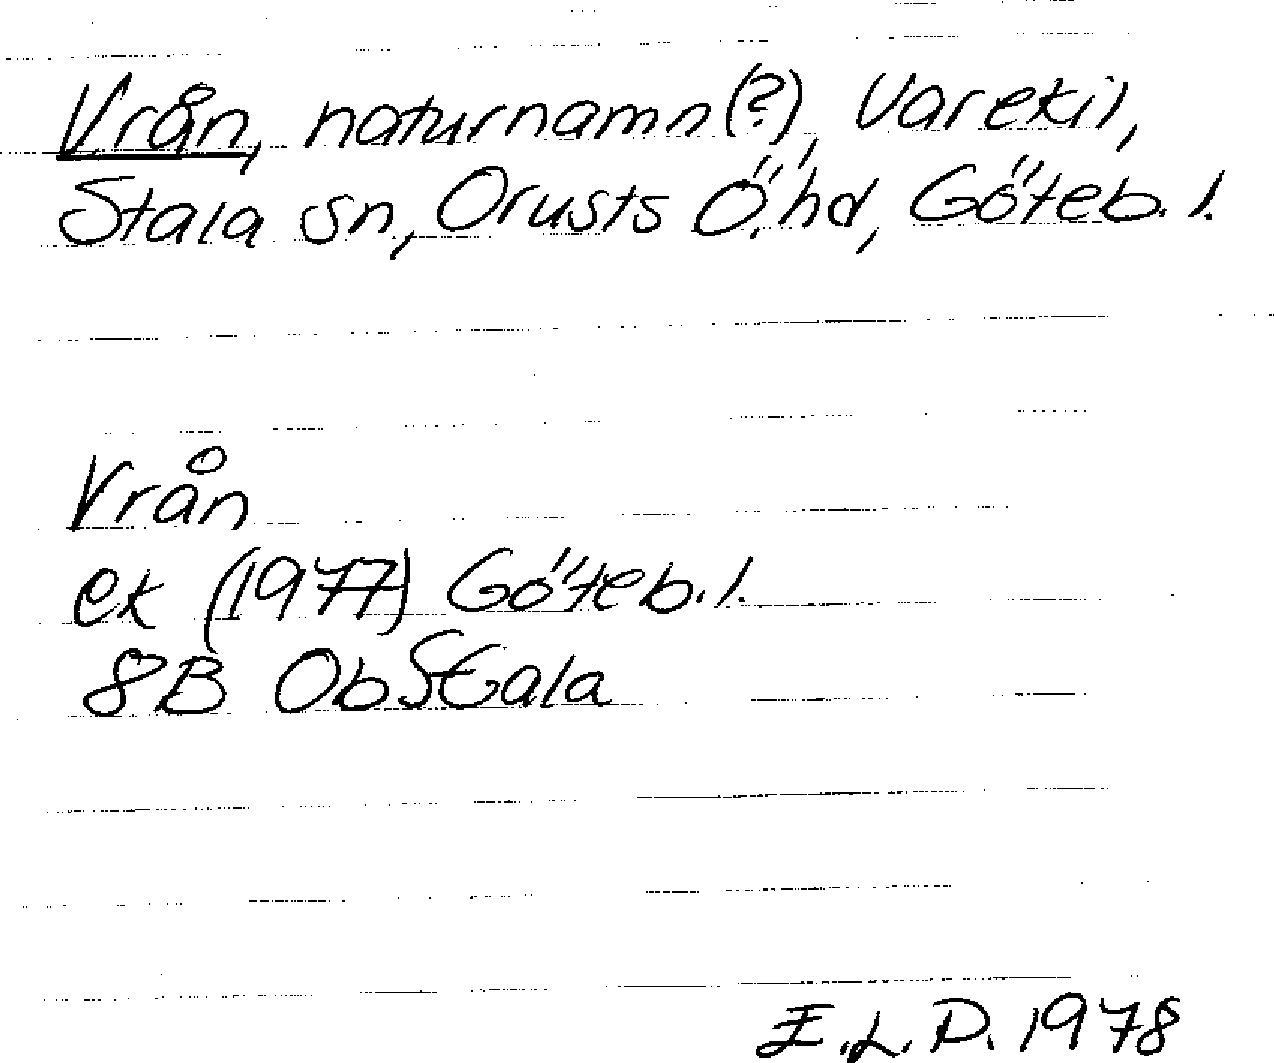 Vrån, naturnamn(?), Varekil,
Stala sn, Orusts Ö.hd, Göteb. l.
Vrån
ek (1977) Göteb. l.
8B Ob Stala
E.L.P. 1978